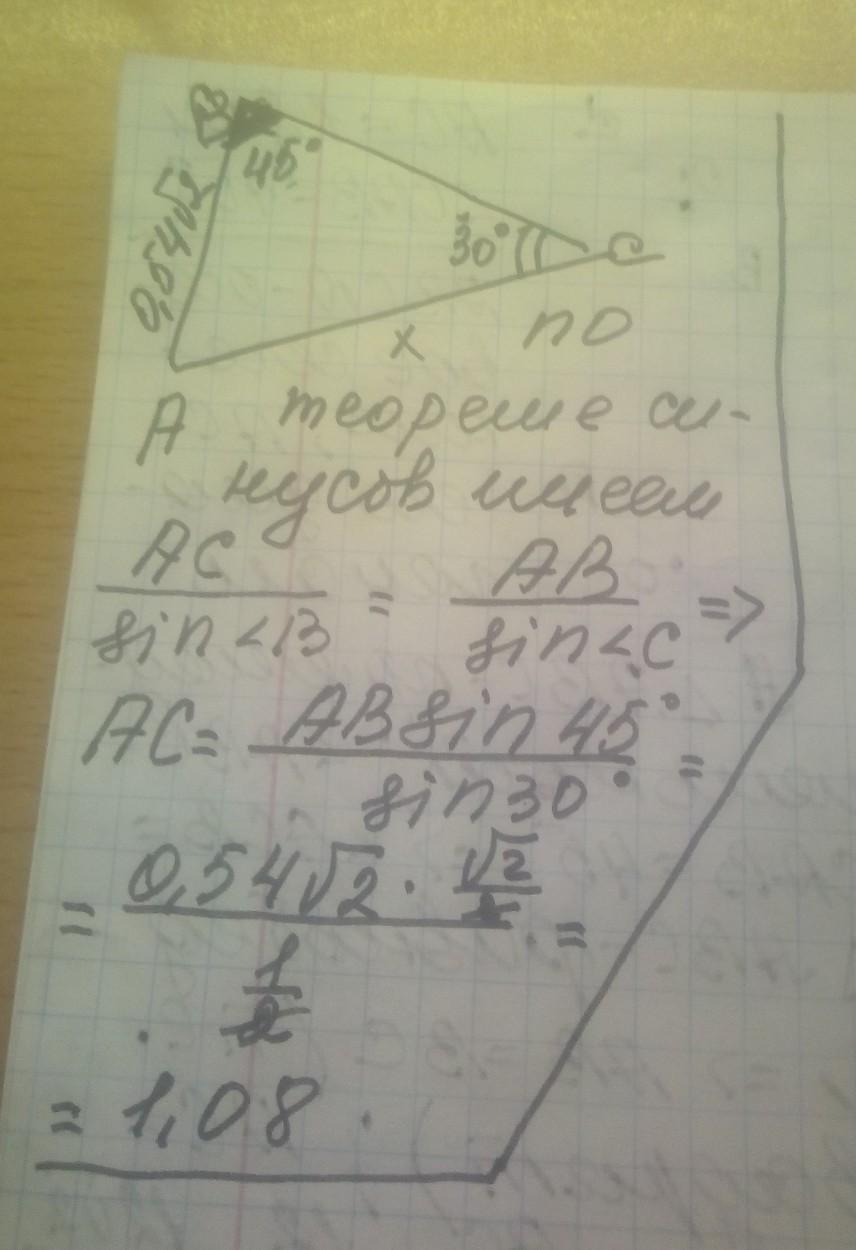 B
45°
0,54√2
30°
C
x
по
A теореме си-
нусов имеем
AC/sin<B = AB/sin<C =>
AC = AB sin 45°/sin 30° =
= 0,54√2 · √2/2 / 1/2 =
= 1,08